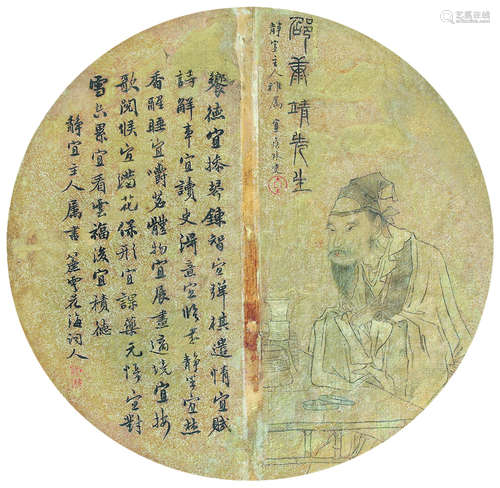 邵康靖先生
静宜主人雅属
饗德宜操琴鍊智宜彈棋遣情宜賦
詩解事宜讀史得意宜臨書靜坐宜焚
香醒睡宜嚼茗體物宜展畫適境宜按
歌閱候宜灌花保形宜課藥元悟宜對
雪忘累宜看雲福後宜積德
静宜主人属書 花海詞人
艺典中国